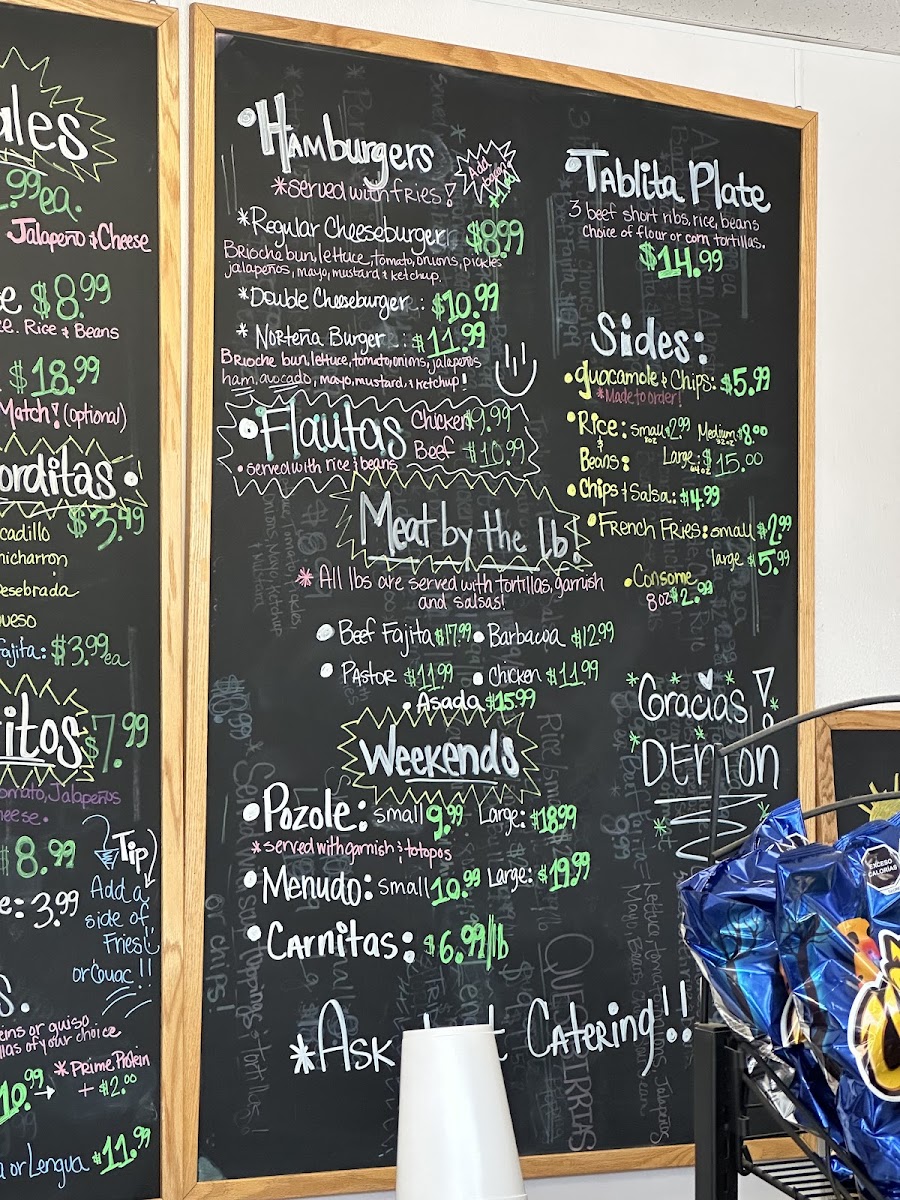 ales
.99 ea.
Jalapeño & Cheese
$8.99
Rice & Beans
$18.99
Match! (optional)
orditas
$3.49
cadillo
hicharron
esebrada
ueso
ajita: $3.99 ea
itos $7.99
omato, Jalapeños
heese.
$8.99
e: 3.99
Tip
Add a
side of
Fries!
or Guac!!
s.
eins or guiso
llas of your choice
10.99
*Prime Protein
+ $2.00
a or Lengua $11.99
Hamburgers
*served with fries!
Add
bacon
*Regular Cheeseburger $8.99
Brioche bun, lettuce, tomato, onions, pickles
jalapeños, mayo, mustard & ketchup.
*Double Cheeseburger: $10.99
* Norteña Burger: $11.99
Brioche bun, lettuce, tomato, onions, jalapeños
ham, avocado, mayo, mustard, & ketchup!
Flautas
Chicken $9.99
Beef $10.99
• served with rice & beans
Meat by the lb!
* All lbs are served with tortillas, garnish
and salsas!
Beef Fajita $17.99 • Barbacoa $12.99
• Pastor $11.99 • Chicken $11.99
• Asada $15.99
Weekends
• Pozole: small 9.99 Large: $18.99
*served with garnish & totopos
• Menudo: small 10.99 Large: $19.99
• Carnitas: $6.99/lb
*Ask Catering!!
• Tablita Plate
3 beef short ribs, rice, beans
choice of flour or corn tortillas.
$14.99
Sides:
• guacamole & Chips: $5.99
*Made to order!
• Rice: small $2.99 Medium $8.00
&
8oz 32oz
Beans: Large: $15.00
64oz
• Chips & Salsa: $4.99
• French Fries: small $2.99
large $5.99
• Consome
8oz $2.99
Gracias!
DENTON
EXCESO
CALORÍAS